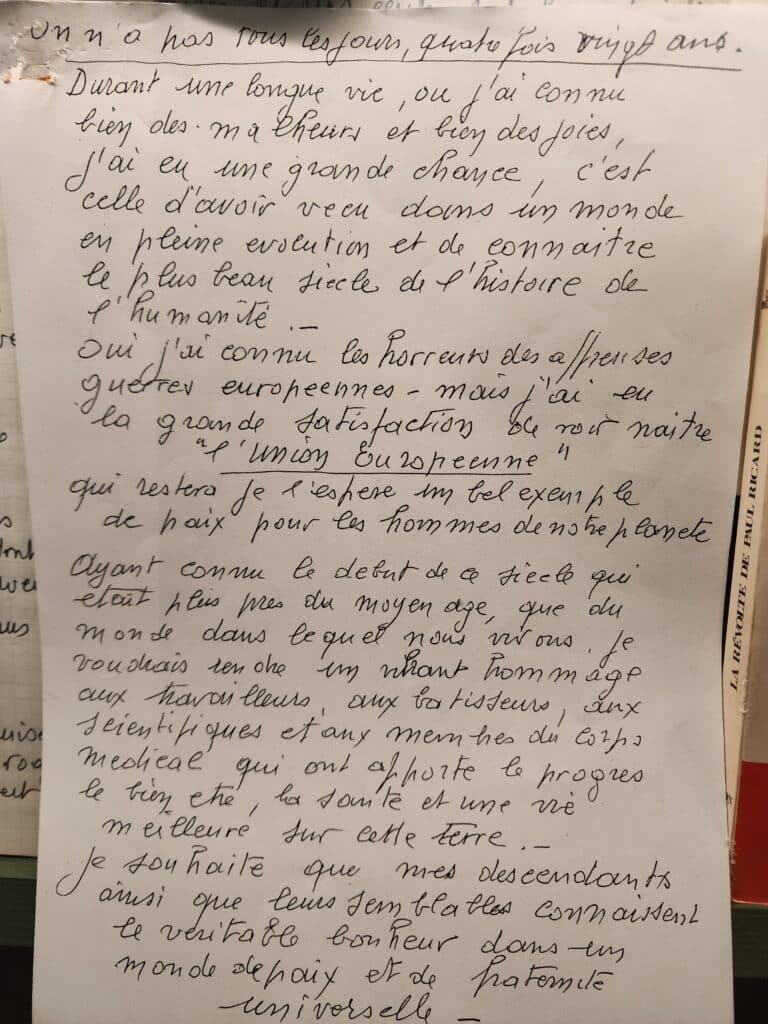 On n'a pas tous les jours, quatre fois vingt ans.
Durant une longue vie, ou j'ai connu
bien des malheurs et bien des joies,
j'ai eu une grande chance, c'est
celle d'avoir vecu dans un monde
en pleine evolution et de connaitre
le plus beau siecle de l'histoire de
l'humanité. –
Oui j'ai connu les horreurs des affreuses
guerres europeennes – mais j'ai eu
la grande satisfaction de voir naitre
"l'Union Europeenne"
qui restera je l'espere un bel exemple
de paix pour les hommes de notre planete
Ayant connu le debut de ce siecle qui
etait plus pres du moyen age, que du
monde dans lequel nous vivons, je
voudrais rendre un vibrant hommage
aux travailleurs, aux batisseurs, aux
scientifiques et aux membres du corps
medical qui ont apporte le progres
le bien etre, la santé et une vie
meilleure sur cette terre. –
Je souhaite que mes descendants
ainsi que leurs semblables connaissent
le veritable bonheur dans un
monde de paix et de fraternité
universelle –
LA RÉVOLTE DE PAUL RICARD